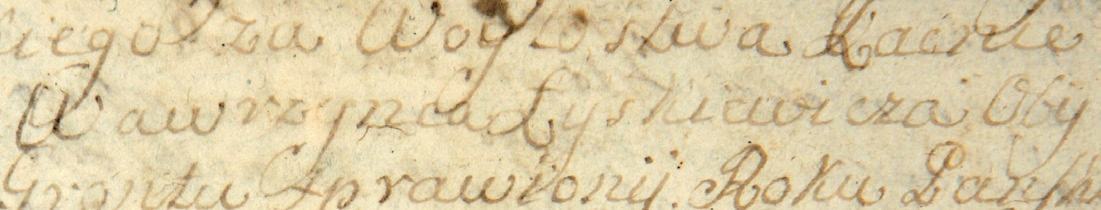 iego za Woytostwa Zacnie
Wawrzynca Łyskiewicza Oby
Gróntu Sprawiony. Roku Pańsk